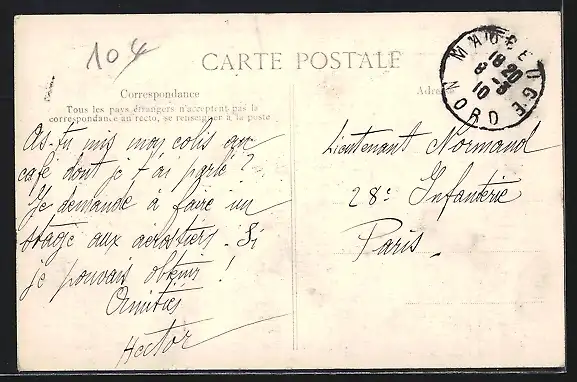 104
CARTE POSTALE
MAUBEUGE
18 20
8 -3
10
NORD
Correspondance
Tous les pays étrangers n'acceptent pas la
correspondance au recto, se renseigner à la poste
As-tu mis mon colis au
café dont je t'ai parlé ?
Je demande à faire un
stage aux aerostiers. Si
je pouvais obtenir !
Amitiés
Hector
Lieutenant Normand
28e Infanterie
Paris.